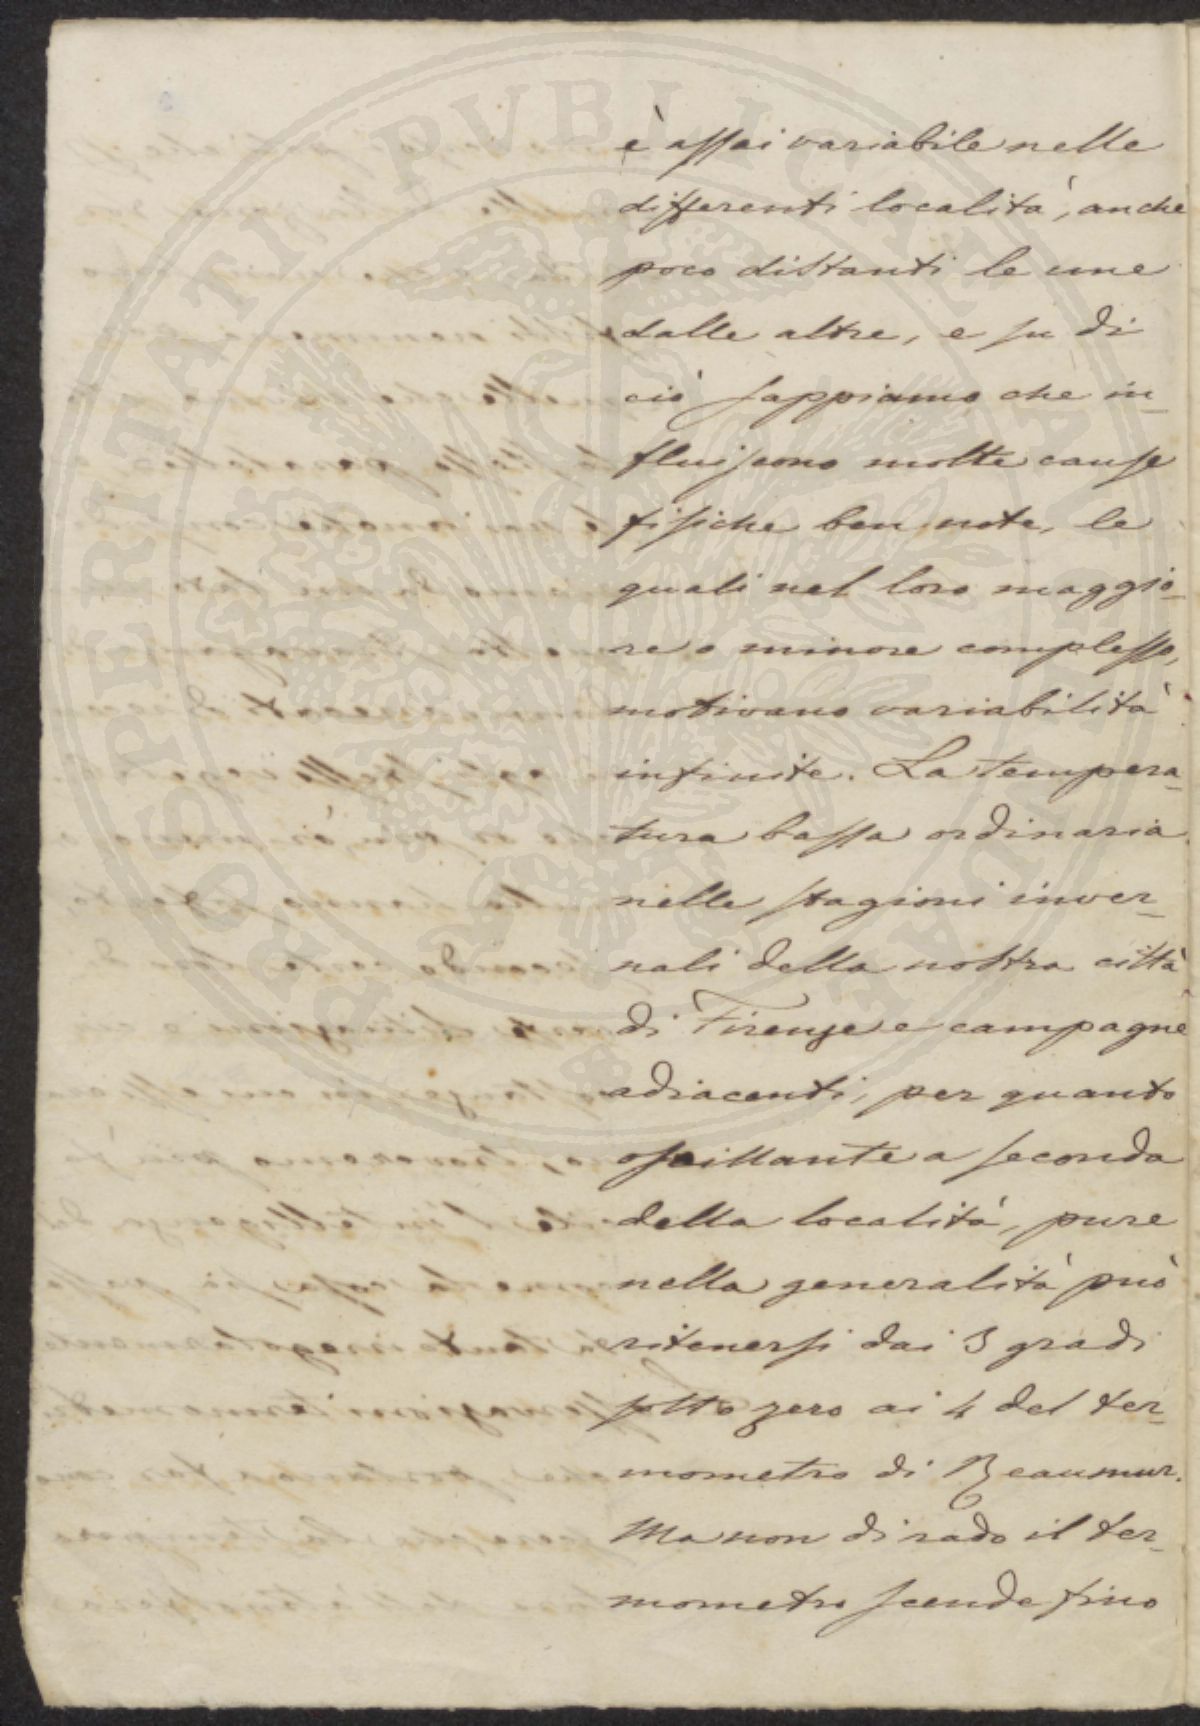 è assai variabile nelle
differenti località, anche
poco distanti le une
dalle altre, e su di
ciò sappiamo che in-
fluiscono molte cause
fisiche ben note, le
quali nel loro maggio-
re o minore complesso,
motivano variabilità
infinite. La tempera-
tura bassa ordinaria
nelle stagioni inver-
nali della nostra città
di Firenze e campagne
adiacenti, per quanto
oscillante a seconda
della località, pure
nella generalità può
ritenersi dai 3 gradi
sotto zero ai 4 del ter-
mometro di Reaumur.
Ma non di rado il ter-
mometro scende fino
PROSPERITATI PVBLICAE AVGENDAE